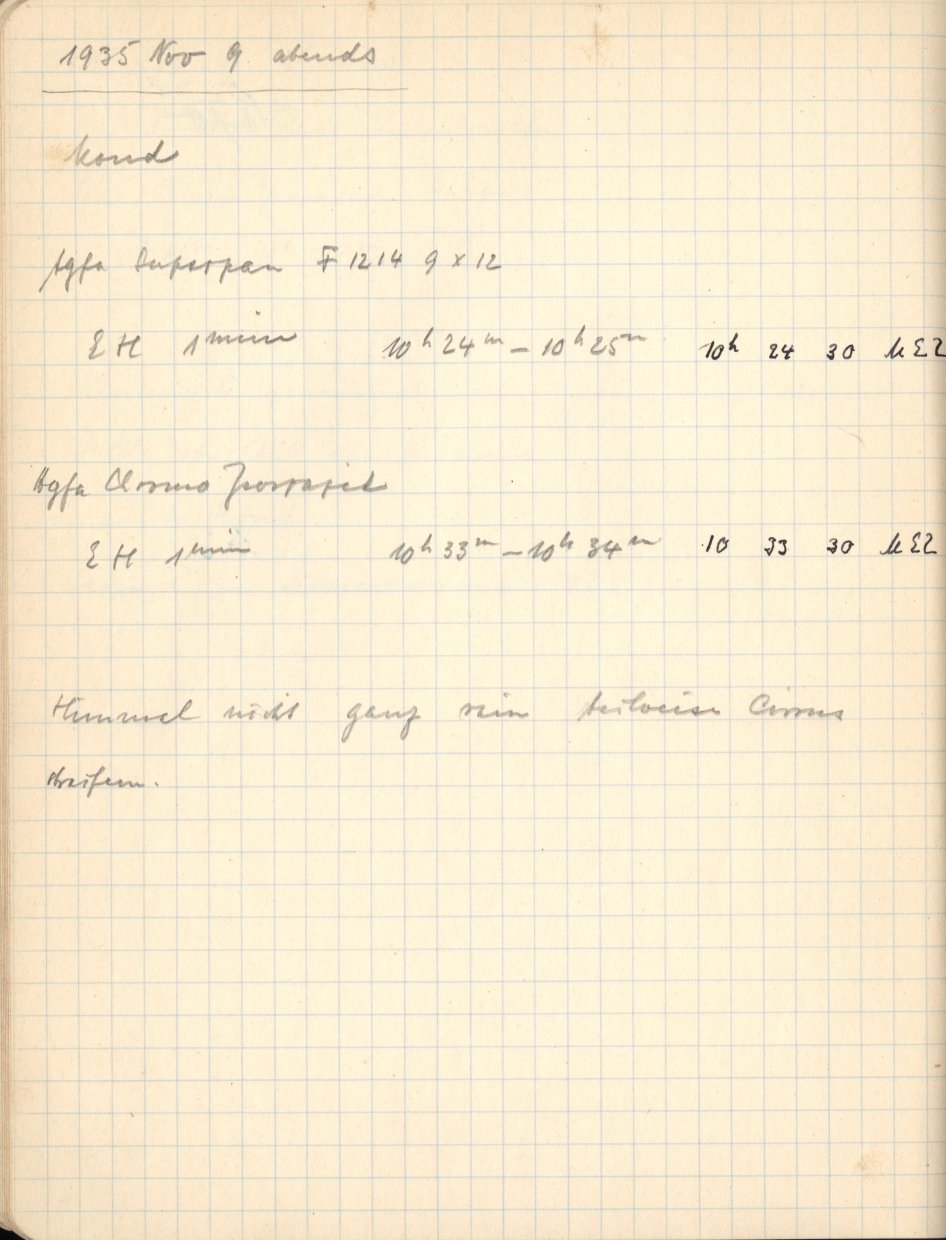 1935 Nov 9 abends
Mond
Agfa Superpan F 1214 9 x 12
E H 1min 10h 24m – 10h 25m 10h 24 30 MEZ
Agfa Chromo
E H 1min 10h 33m – 10h 34m 10 33 30 MEZ
Himmel nicht ganz rein teilweise Cirrus
streifen.